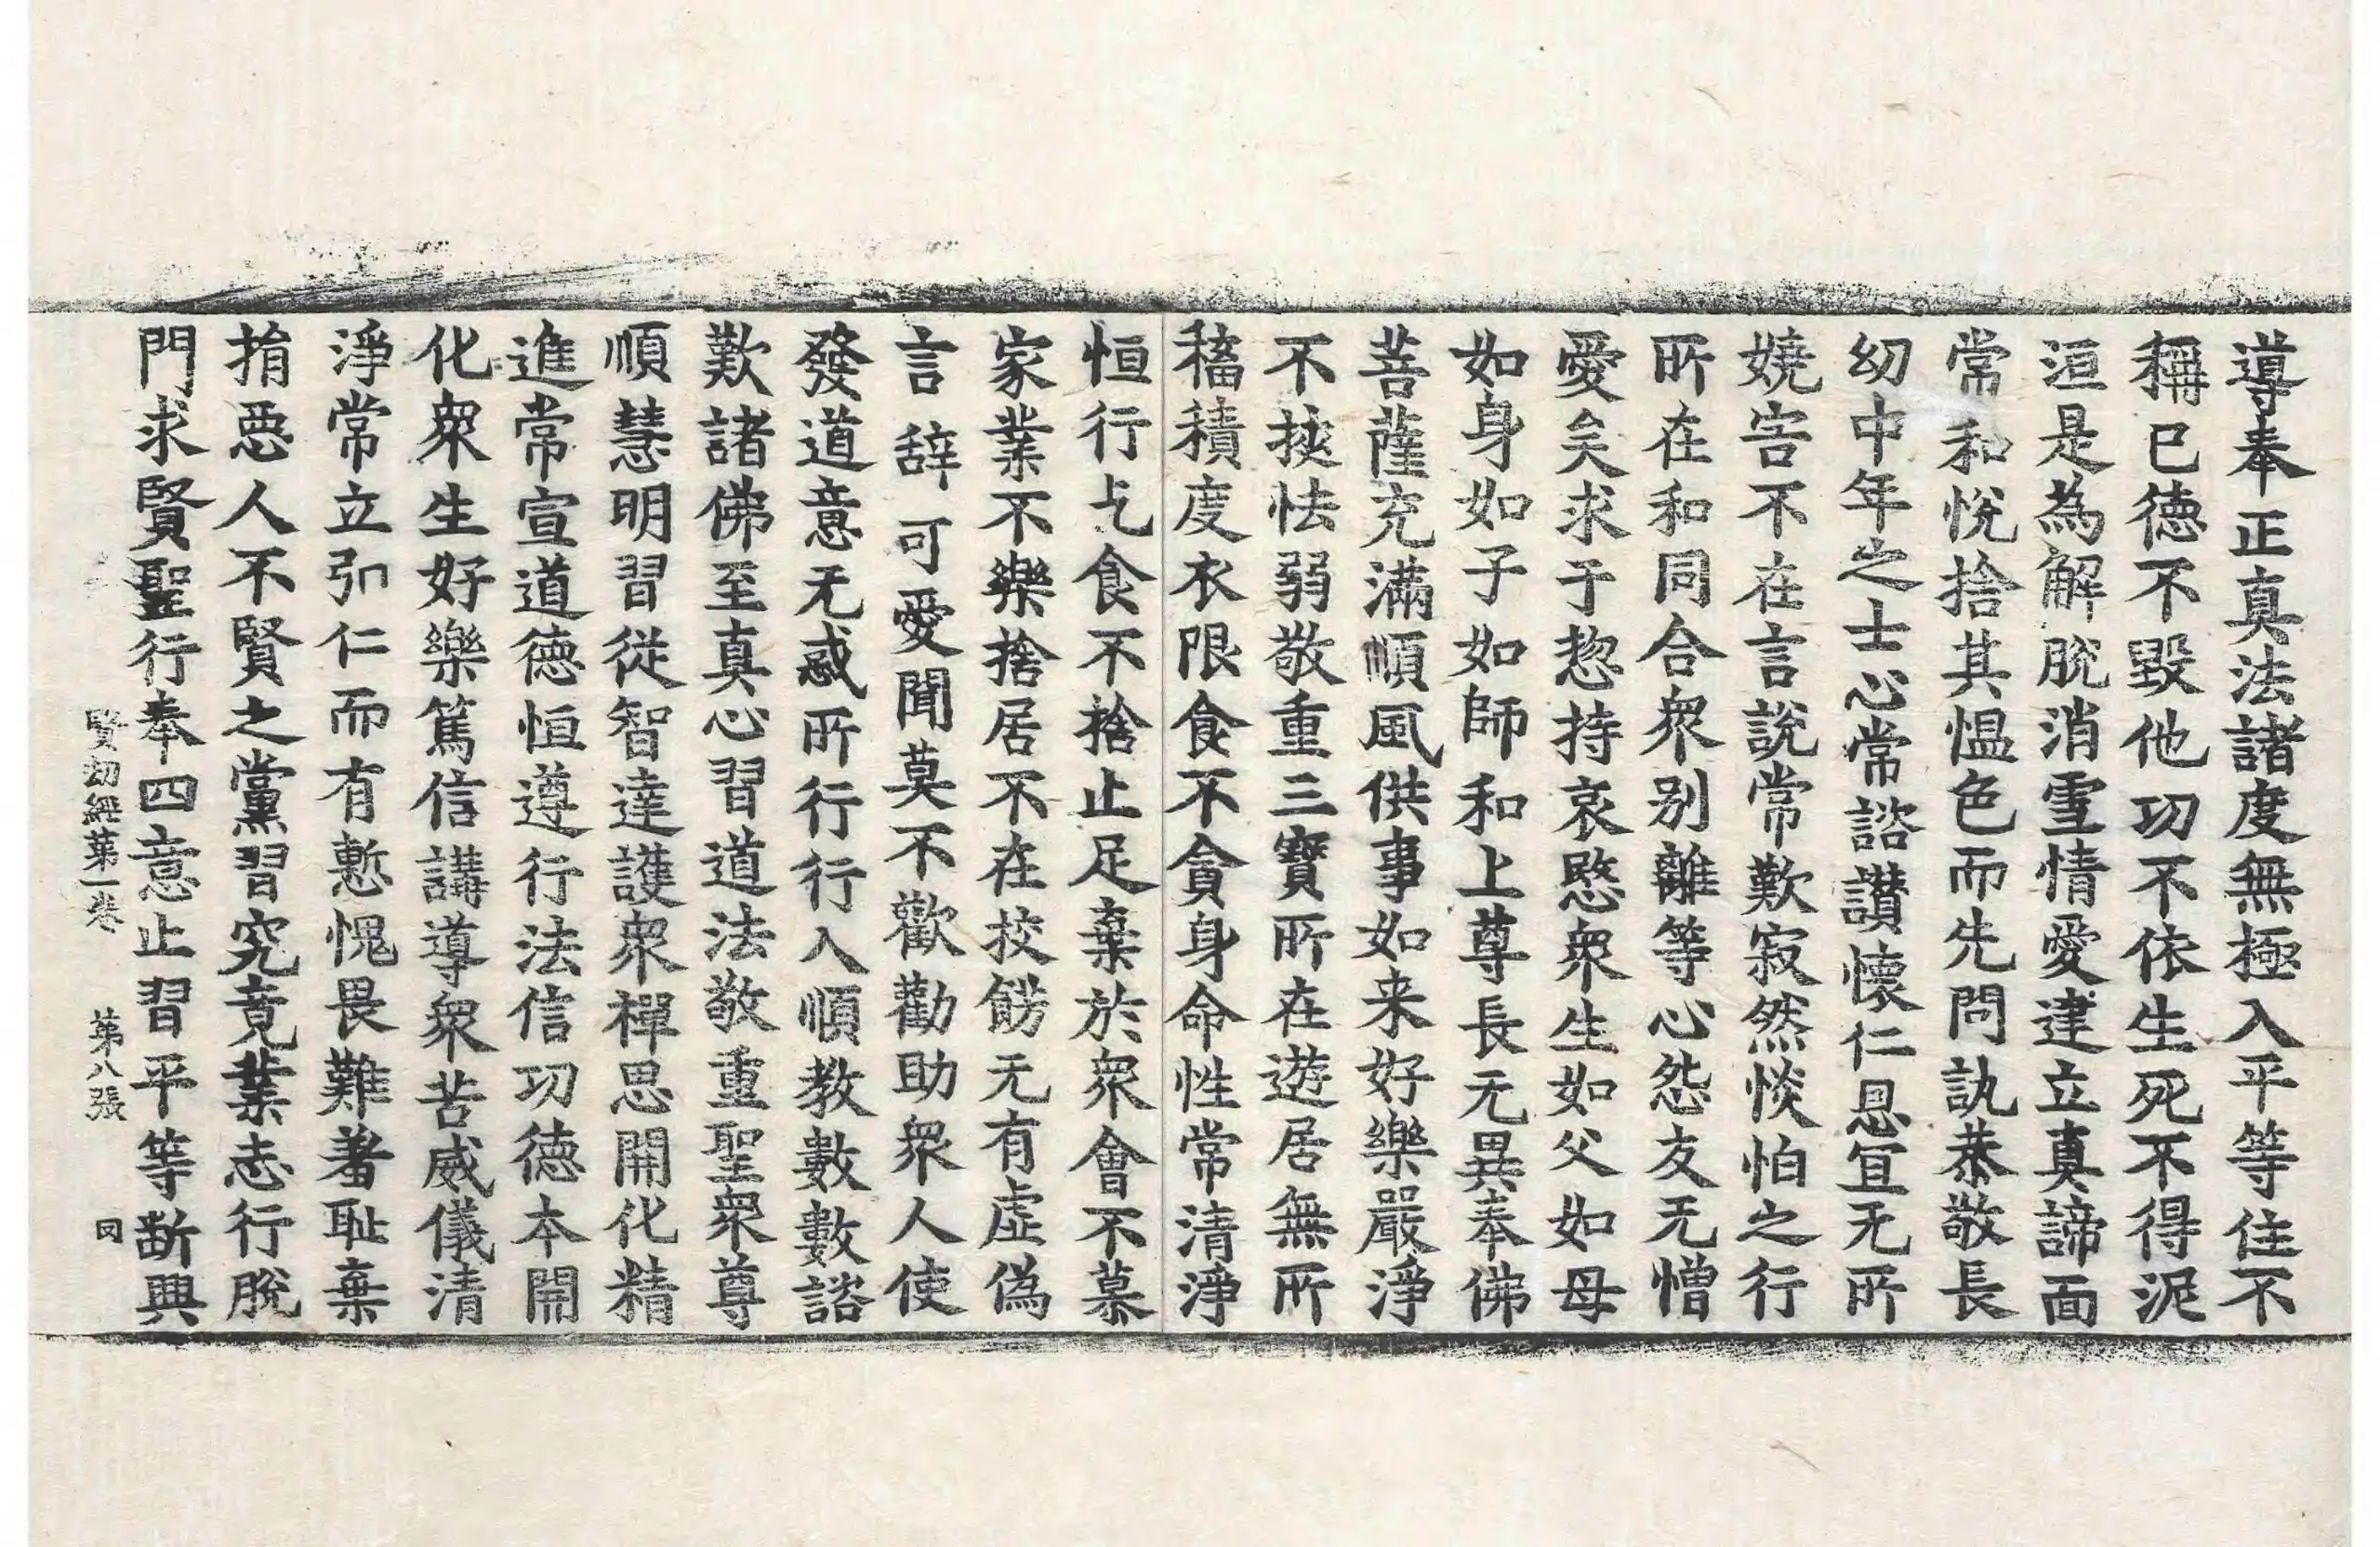 導奉正真法諸度無極入平等住不
稱已德不毀他功不依生死不得泥
洹是為解脫消雪情愛建立真諦面
常和悅捨其慍色而先問訊恭敬長
幼中年之士心常諮讃懷仁恩宜无所
嬈害不在言說常歎寂然惔怕之行
所在和同合衆別離等心怨友无憎
愛矣求于惣持哀愍衆生如父如母
如身如子如師和上尊長无異奉佛
菩薩充滿順風供事如来好樂嚴淨
不挾怯弱敬重三寶所在遊居無所
稸積度衣限食不貪身命性常清淨
恒行乞食不捨止足棄於衆會不慕
家業不樂捨居不在校餝无有虛偽
言辞可愛聞莫不歡勸助衆人使
發道意无惑所行行入順教數數諮
歎諸佛至真心習道法敬重聖衆尊
順慧明習從智達護衆禪思開化精
進常宣道德恒遵行法信功德本開
化衆生好樂篤信講導衆苦威儀清
淨常立弘仁而有慙愧畏難羞恥棄
捐惡人不賢之黨習究竟業志行脫
門求賢聖行奉四意止習平等斷興
賢劫經第一卷 第八張 囙